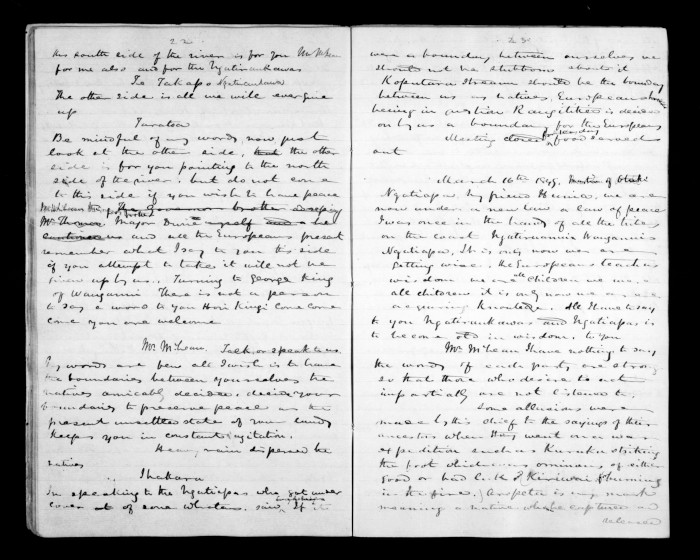 22
this south side of the river is for you Mr McLean
for me also and for the Ngatiraukawas
Te Tahapo Ngatiraukawa
The other side is all we will ever give
up
Taratoa
Be mindful of my words now just
look at the other side, that the other
side is for you pointing to the north
side of the river but do not come
to this side if you wish to have peace
Major Durie myself and
us and all the Europeans present
remember what I say to you this side
if you attempt to take it will not be
given up by us. Turning to George King
of Wanganui There is not a person
to say a word to you Hori Kingi Come Come
Come you are welcome
Mr McLean, Talk, or speak to us
My words are few all I wish is to have
the boundaries between yourselves the
natives amicably decided. decide your
boundaries to preserve peace as the
present unsettled state of your lands
keeps you in constant agitation.
Heavy rain dispersed the
natives
Ihakara
In speaking to the Ngatiapas who got under
cover of some whatas. said, If
23
were a boundary between ourselves we
should not be stubborn should
Koputara Stream should be the boundary
between us as natives, Europeans
being in question Rangitikei is decided
on by us a boundary for the Europeans
Meeting closed food served
out
March 16th 1849.
Ngatiapa, my friend Hunia, we are
now under a new law a law of peace
I was once in the hands of all the tribes
on the coast Ngatiraukawa Wanganui
Ngatiapa, It is only now we are
getting wise, the Europeans teach us
wisdom we are all children we are
all children it is only now we are
acquiring Knowledge. All I have to say
to you Ngatiraukawas and Ngatiapas is
to become old in wisdom, to you
Mr McLean I have nothing to say,
the words of each party are strong
so that those who desire to act
impartially are not listened to,
Some allusions were
made by this chief to the sayings of their
ancestors when they went on a war
expedition such as Kuraku striking
the foot which was ominous of either
Good or bad luck & Kiriwai humming
in the fire. is my mark
meaning a native who be captured and
released